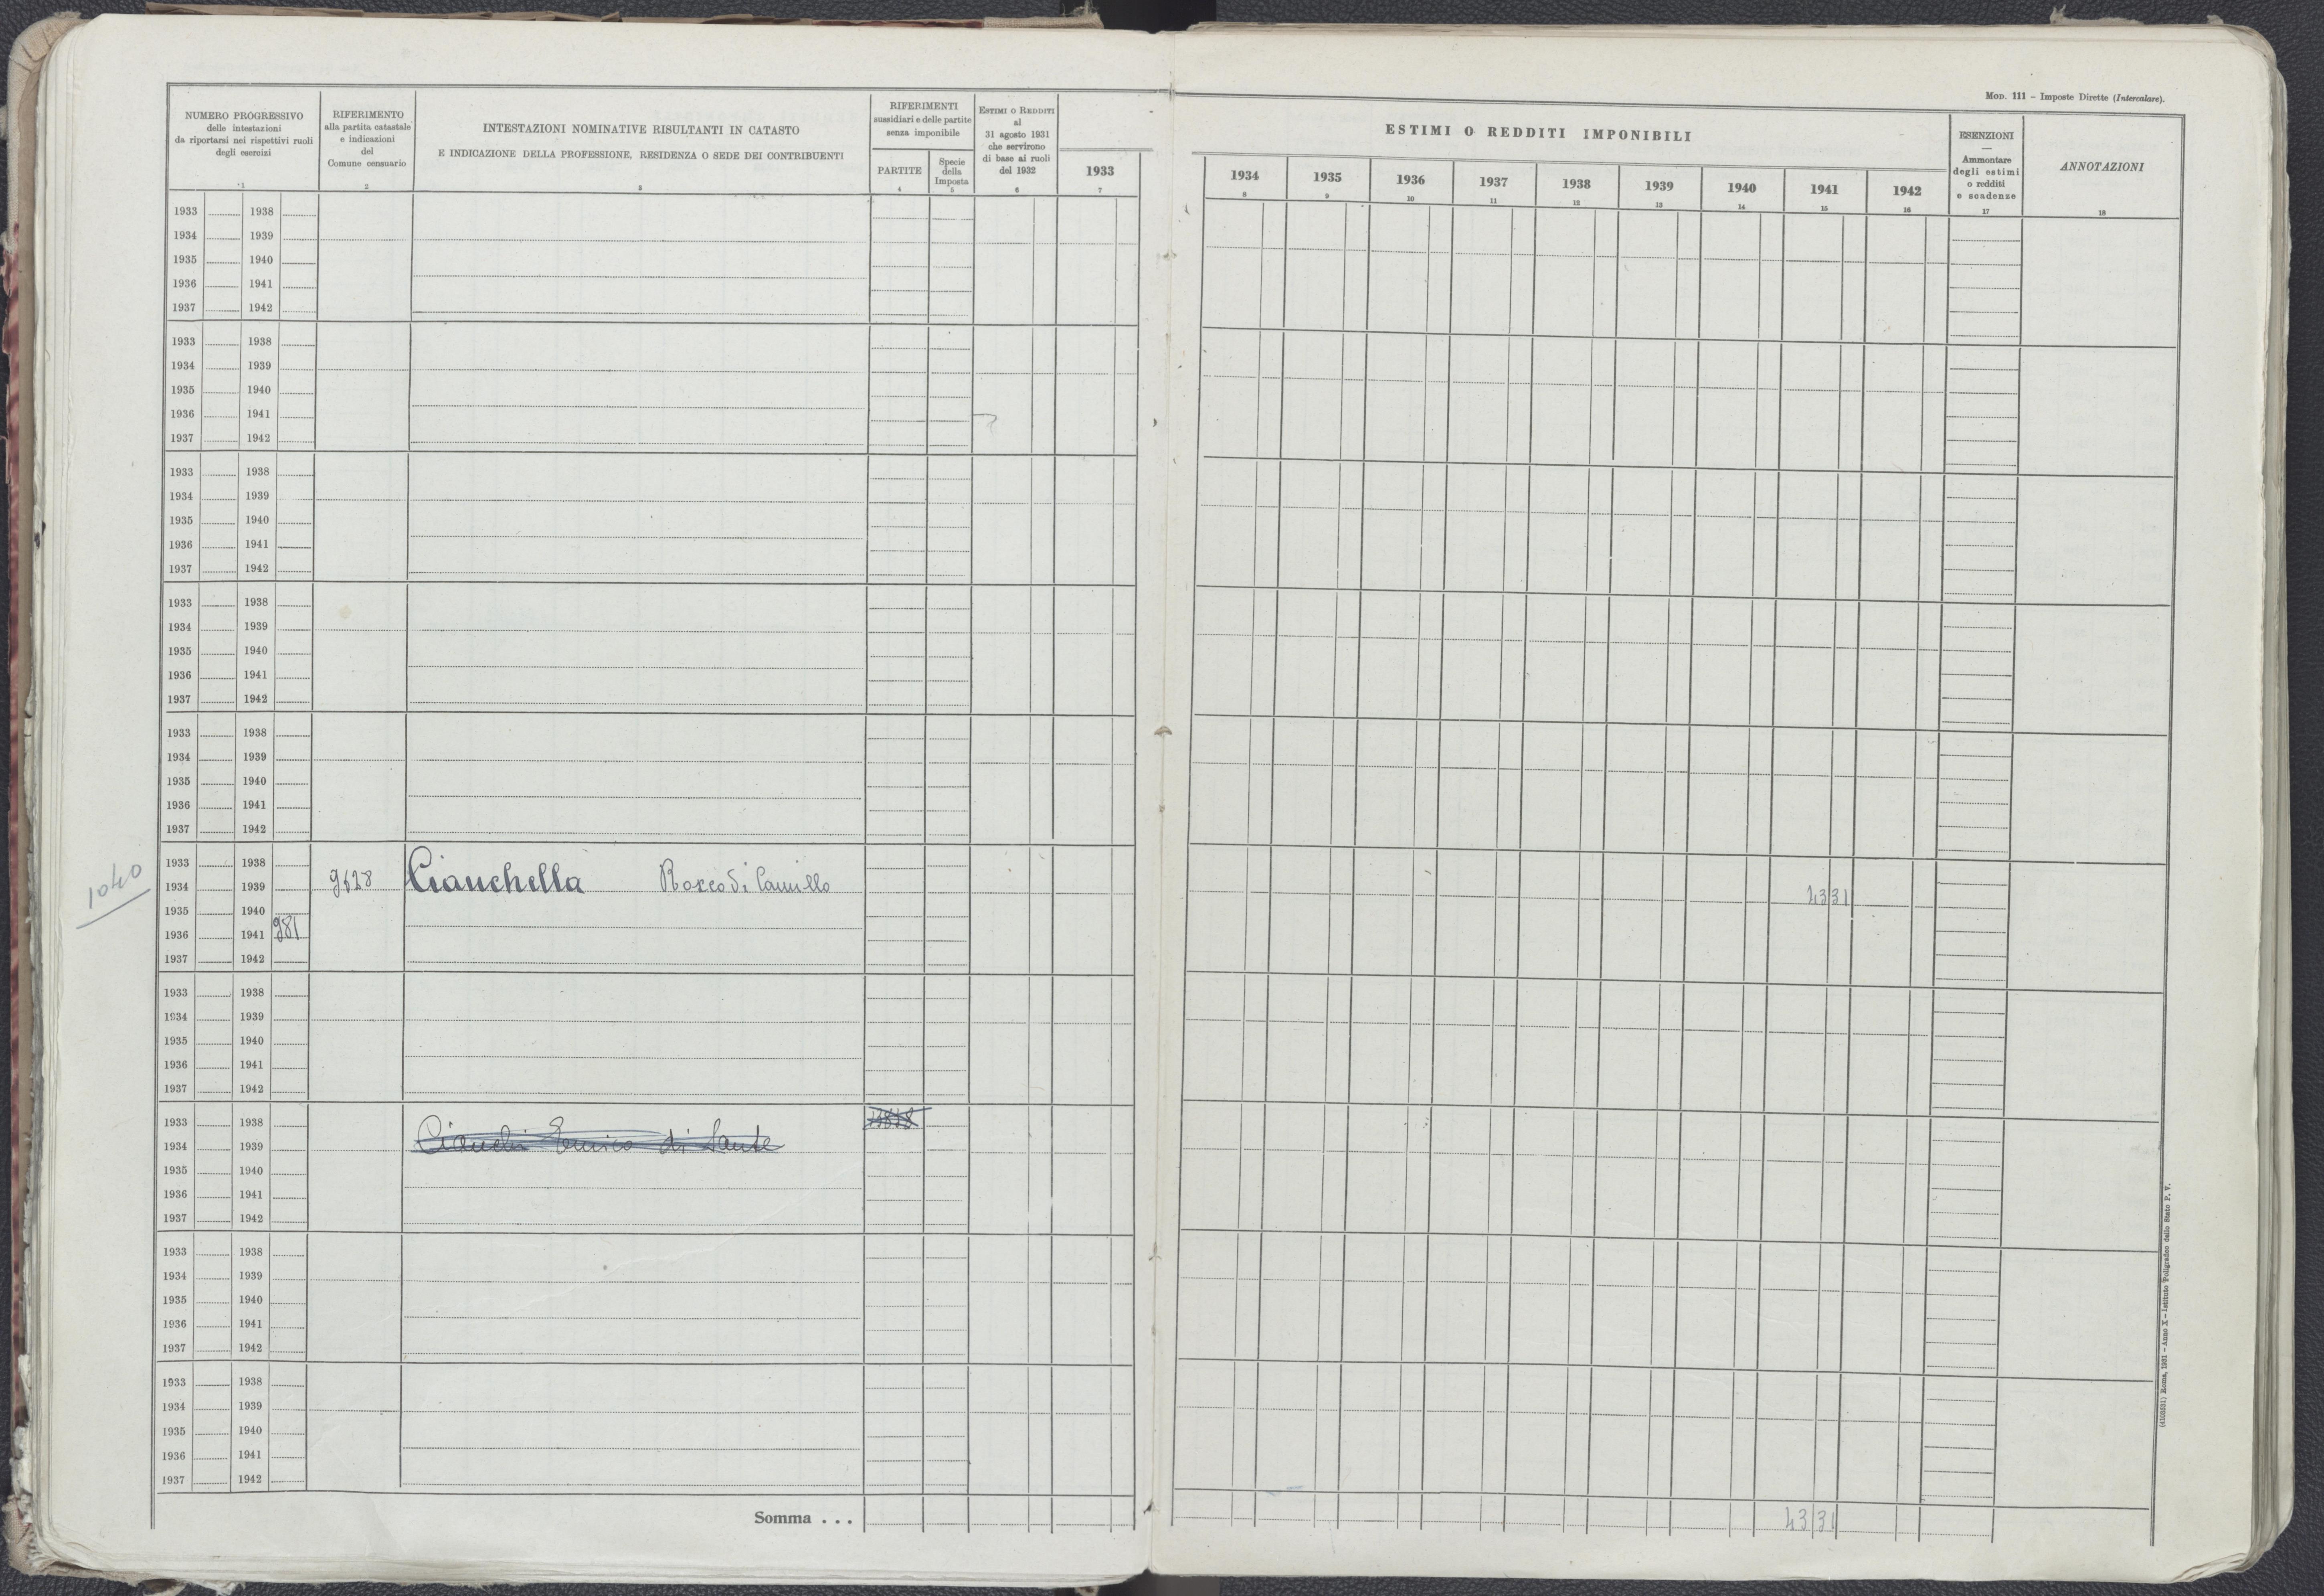 MOD. 111 – Imposte Dirette (Intercalare).
NUMERO PROGRESSIVO
delle intestazioni
da riportarsi nei rispettivi ruoli
degli esercizi
1
RIFERIMENTO
alla partita catastale
e indicazioni
del
Comune censuario
2
INTESTAZIONI NOMINATIVE RISULTANTI IN CATASTO
E INDICAZIONE DELLA PROFESSIONE, RESIDENZA O SEDE DEI CONTRIBUENTI
3
RIFERIMENTI
sussidiari e delle partite
senza imponibile
PARTITE
4
Specie
della
Imposta
5
ESTIMI O REDDITI
al
31 agosto 1931
che servirono
di base ai ruoli
del 1932
6
1933
7
ESTIMI O REDDITI IMPONIBILI
1934 1935 1936 1937 1938 1939 1940 1941 1942
8 9 10 11 12 13 14 15 16
ESENZIONI
—
Ammontare
degli estimi
o redditi
e scadenze
17
ANNOTAZIONI
18
1933 1938
1934 1939
1935 1940
1936 1941
1937 1942
1933 1938
1934 1939
1935 1940
1936 1941
1937 1942
1933 1938
1934 1939
1935 1940
1936 1941
1937 1942
1933 1938
1934 1939
1935 1940
1936 1941
1937 1942
1933 1938
1934 1939
1935 1940
1936 1941
1937 1942
1040
1933 1938
1934 1939 9628 Cianchella Rocco di Camillo 43 31
1935 1940
1936 1941 981
1937 1942
1933 1938
1934 1939
1935 1940
1936 1941
1937 1942
1933 1938
1934 1939 Cianchi Enrico di Sante
1935 1940
1936 1941
1937 1942
1933 1938
1934 1939
1935 1940
1936 1941
1937 1942
1933 1938
1934 1939
1935 1940
1936 1941
1937 1942
Somma . . . 43 31
Roma, 1931 – Anno X – Istituto Poligrafico dello Stato P. V.